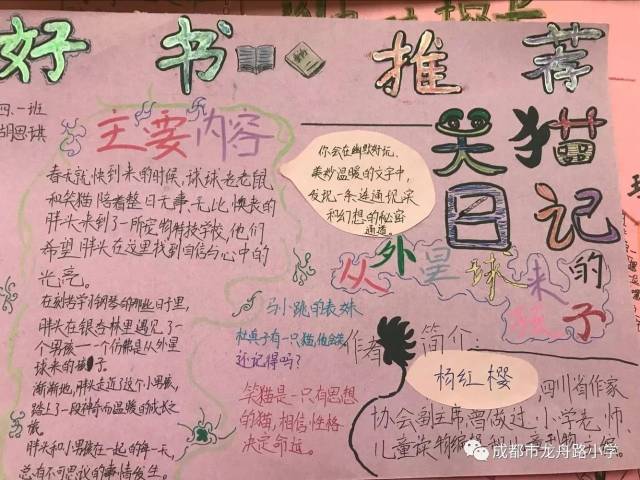 好书推荐
四.一班
胡思琪
主要内容
春天就快到来的时候，球球老老鼠
和笑猫陪着整日无事、无比懊丧的
胖头来到了一所宠物科技学校，他们
希望胖头在这里找到自信与心中的
光亮。
在刻苦学习钢琴的那些日子里，
胖头在银杏林里遇见了一
个男孩——一个仿佛是从外星
球来的孩子
渐渐地，胖头走近了这个小男孩，
踏上了一段神奇而温暖的成长之
旅。
胖头和小男孩在一起的每一天，
总有不可思议的事情发生。
你会在幽默好玩、
美妙温暖的文字中，
发现一条连通现实
和幻想的秘密
通道。
笑猫
日记
从外星球来的
孩子
马小跳的表妹
杜真子有一只猫，他会笑
还记得吗？
笑猫是一只有思想
的猫，相信性格
决定命运。
作者简介：
杨红樱
四川省作家
协会副主席，曾做过小学老师、
儿童读物编
成都市龙舟路小学